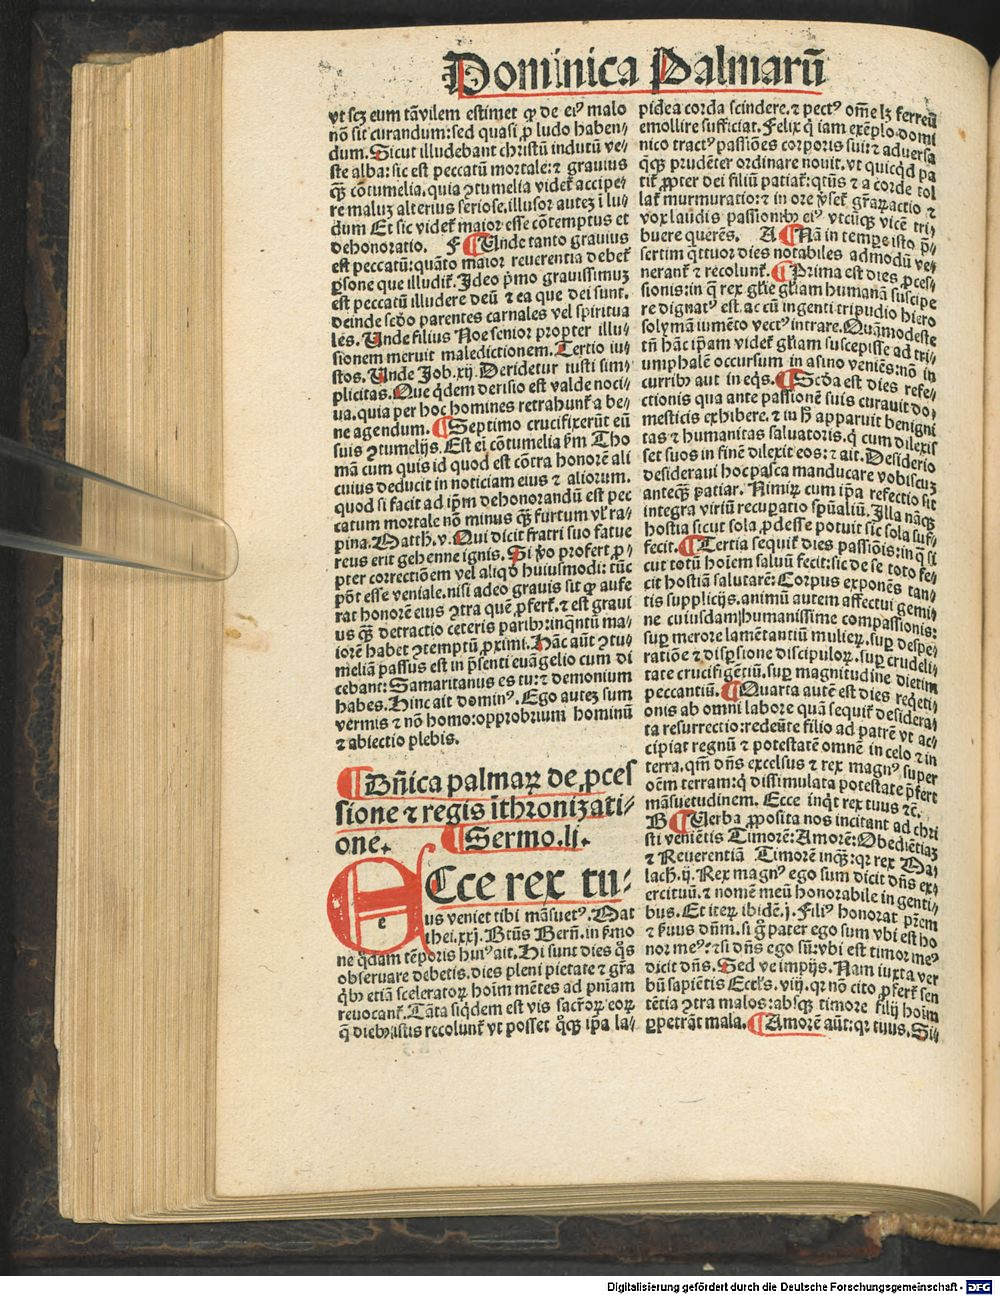 Dominica Palmarū
vt scꝫ eum tāvilem estimet ꝙ de eiꝰ malo
nō sit curandum: sed quasi ꝓ ludo haben⸗
dum. Sicut illudebant christū indutū ve⸗
ste alba: sic est peccatū mortale: ⁊ grauius
qꝫ̄ cōtumelia. quia ꝯtumelia videt᷑ accipe⸗
re maluꝫ alterius seriose. illusor auteꝫ ī lu⸗
dum Et sic videt᷑ maior esse cōtemptus et
dehonoratio. F ¶ Unde tanto grauius
est peccatū: quāto maior reuerentia debet᷑
ꝑsone que illudit᷑. Ideo pͥmo grauissimuꝫ
est peccatū illudere deū ⁊ ea que dei sunt.
deinde scd̓o parentes carnales vel spiritua
les. Unde filius Noe senior propter illu⸗
sionem meruit maledictionem. Tertio iu⸗
stos. Unde Job. xij. Deridetur iusti sim⸗
plicitas. Que q̇dem derisio est valde noci⸗
ua. quia per hoc homines retrahunt᷑ a be⸗
ne agendum. ¶ Septimo crucifixerūt eū
suis ꝯtumelijs. Est eī cōtumelia ẜm Tho
mā cum quis id quod est cōtra honorē ali
cuius deducit in noticiam eius ⁊ aliorum.
quod si facit ad ip̄m dehonorandū est pec
catum mortale nō minus qꝫ̄ furtum vl̓ ra⸗
pina. Matth. v. Qui dicit fratri suo fatue
reus erit gehenne ignis. Si v̓o profert ꝓ⸗
pter correctiōem vel aliqd̓ huiusmodi: tūc
pōt esse veniale. nisi adeo grauis sit ꝙ aufe
rat honorē eius ꝯtra quē ꝓfert᷑. ⁊ est graui
us qꝫ̄ detractio ceteris paribꝫ: inqntū ma⸗
iorē habet ꝯtemptū ꝓximi. Hāc aūt ꝯtu⸗
meliā passus est in p̄senti euāgelio cum di
cebant: Samaritanus es tu: ⁊ demonium
habes. Hinc ait dominꝰ. Ego auteꝫ sum
vermis ⁊ nō homo: opprobrium hominū
⁊ abiectio plebis.
¶ Dn̄ica palmaꝝ de ꝓces
sione ⁊ regis īthronizati⸗
one. ¶ Sermo. lj.
Ecce rex tu⸗
us veniet tibi māsuetꝰ. Mat
thei. xxj. Btūs Bern̄. in ẜmo
ne q̇dam tēporis huiꝰ ait. Hi sunt dies q̊s
obseruare debetis. dies pleni pietate ⁊ gr̄a
q̇bꝫ etiā sceleratoꝝ hoīm mētes ad pn̄iam
reuocant᷑. Tāta siq̇dem est vis sacr̄oꝝ eoꝝ
q̄ diebꝫ istis recolunt᷑ vt posset q̊qꝫ ip̄a la⸗
pidea corda scindere. ⁊ pectꝰ om̄e lꝫ ferreū
emollire sufficiat. Felix q̇ iam exēplo domi
nico tractꝰ passiōes corporis sui: ⁊ aduersa
q̄qꝫ prudēter ordinare nouit. vt quicq̇d pa
tit᷑ ꝓpter dei filiū patiat᷑: qtūs ⁊ a corde tol
lat᷑ murmuratio: ⁊ in ore v̓set᷑ gr̄aꝝ actio ⁊
vox laudis passionibꝫ eiꝰ vtcūqꝫ vicē tri⸗
buere querēs. A ¶ Nā in tempe isto p̄⸗
sertim q̇ttuor dies notabiles admodū ve⸗
nerant᷑ ⁊ recolunt᷑. ¶ Prima est dies ꝓces⸗
sionis: in q̄ rex gl̓ie gl̓iam humanā suscipe
re dignatꝰ est. ac cū ingenti tripudio hiero
solymā iumēto vectꝰ intrare. Quāmodeste
tn̄ hāc ip̄am videt᷑ gl̓iam suscepisse ad tri⸗
umphalē occursum in asino veniēs: nō in
curribꝫ aut in eq̇s. ¶ Scd̓a est dies refe⸗
ctionis qua ante passionē suis curauit do⸗
mesticis exhibere. ⁊ in h̄ apparuit benigni
tas ⁊ humanitas saluatoris. q̇ cum dilexis
set suos in finē dilexit eos: ⁊ ait. Desiderio
desideraui hoc pasca manducare vobiscuꝫ
anteqꝫ̄ patiar. Nimiꝝ cum ip̄a refectio sit
integra viriū recuꝑatio sp̄ualiū. Illa nāqꝫ
hostia sicut sola ꝓdesse potuit sic sola suf⸗
fecit. ¶ Tertia sequit᷑ dies passiōis: in q̄ si
cut totū hoīem saluū fecit: sic de se toto fe⸗
cit hostiā salutarē: Corpus exponēs tan⸗
tis supplicijs. animū autem affectui gemi⸗
ne cuiusdam humanissime compassionis:
suꝑ merore lamētantiū mulieꝝ. suꝑ despe⸗
ratiōe ⁊ disꝑsione discipuloꝝ. suꝑ crudeli⸗
tate crucifigētiū. suꝑ magnitudine dietim
peccantiū. ¶ Quarta autē est dies req̇eti⸗
onis ab omni labore quā sequit᷑ desidera⸗
ta resurrectio: redeūte filio ad patrē vt ac⸗
cipiat regnū ⁊ potestatē omnē in celo ⁊ in
terra. qm̄ dn̄s excelsus ⁊ rex magnꝰ super
oēm terram: q̇ dissimulata potestate p̄fert
māsuetudinem. Ecce inq̇t rex tuus ⁊c̄.
B ¶ Uerba ꝓposita nos incitant ad chri
sti veniētis Timorē: Amorē: Obediētiaꝫ
⁊ Reuerentiā Timorē inqꝫ: qꝛ rex Ma
lach. ij. Rex magnꝰ ego sum dicit dn̄s ex⸗
ercituū. ⁊ nomē meū honorabile in genti⸗
bus. Et iteꝝ ibidē. j. Filiꝰ honorat pr̄em
⁊ ẜuus dn̄m. si g̊ pater ego sum vbi est ho
nor meꝰ: ⁊ si dn̄s ego sū: vbi est timor meꝰ
dicit dn̄s. Sed ve impijs. Nam iuxta ver
bū sapiētis Eccl̓s. viij. qꝛ nō cito ꝓfert᷑ sen
tētia ꝯtra malos: absqꝫ timore filij hoīm
ꝑpetrāt mala. ¶ Amorē aūt: qꝛ tuus. Si⸗
Digitalisierung gefördert durch die Deutsche Forschungsgemeinschaft - DFG